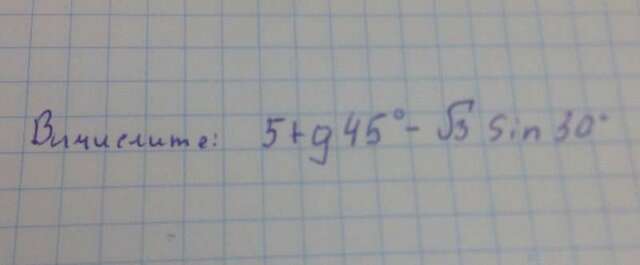 Вычислите: 5tg45° - √3 sin 30°